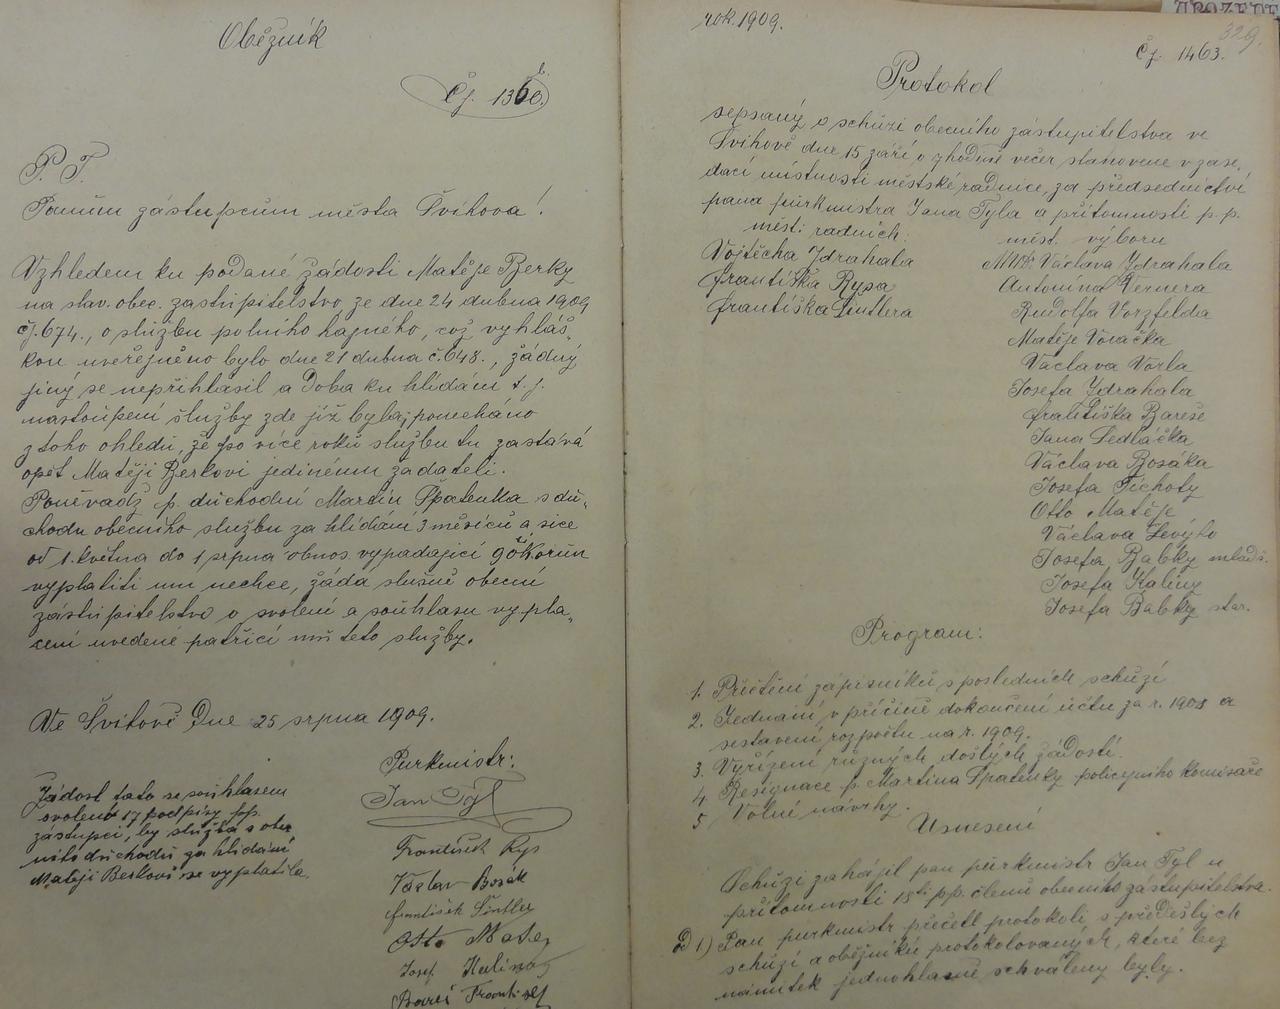 Oběžník
Čj. 1366.
P. T.
Panům zástupcům města Švihova!
Vzhledem ku podané žádosti Matěje Berky
na slav. obec. zastupitelstvo ze dne 24 dubna 1909
čj. 674., o službu polního hajného, což vyhláš„
kou uveřejněno bylo dne 21 dubna č. 648., žádný
jiný se nepřihlásil a doba ku hlídání t. j.
nastoupení služby zde již byla, ponecháno
z toho ohledu, že po více roků službu tu zastává
opět Matěji Berkovi jedinému žadateli.
Poněvadž p. důchodní Martin Špatenka z dů„
chodu obecního službu za hlídání 3 měsíců a sice
od 1. května do 1 srpna obnos vypadající 90 Korun
vyplatiti mu nechce, žádá slušně obecní
zástupitelstvo o svolení a souhlasu vypla„
cení uvedené patřící mu této služby.
Ve Švihově dne 25 srpna 1909.
Purkmistr:
Jan Tyl
Žádost tato se souhlasem
svoleno 17 podpisy pp.
zástupců, by služba s obe
ního důchodu za hlídání
Matěji Berkovi se vyplatila.
František Rys
Václav Bosák
František Šindler
Otto Matěj
Josef Kalina
Bareš František
rok 1909.
329.
Čj. 1463.
Protokol
sepsaný o schůzi obecního zástupitelstva ve
Švihově dne 15 září o 7 hodině večer stanovené v zase„
dací místnosti městské radnice, za předsednictví
pana purkmistra Jana Tyla a přítomnosti p. p.
měst: radních: měst. výboru
Vojtěcha Zdrahala MUDr. Václava Zdrahala
Františka Rysa Antonína Vernera
Františka Šindlera Rudolfa Vorzfelda
Matěje Vováčka
Václava Vorla
Josefa Zdrahala
Františka Bareše
Jana Sedláčka
Václava Bosáka
Josefa Tichoty
Otto Matěje
Václava Levýho
Josefa Babky mladš.
Josefa Kaliny
Josefa Babky star.
Program:
1. Přečtení zápisníků s posledních schůzí
2. Jednání v příčině dokončení účtu za r. 1908 a
sestavení rozpočtu na r. 1909.
3. Vyřízení různých došlých žádostí.
4. Resignace p. Martina Špatenky policejního komisaře
5 Volné návrhy.
Usnesení
Schůzi zahájil pan purkmistr Jan Tyl u
přítomnosti 18ti pp. členů obecního zástupitelstva.
ad 1) Pan purkmistr přečetl protokoli s předešlých
schůzí a oběžníků protokolovaných, které bez
námitek jednohlasně schváleny byly.